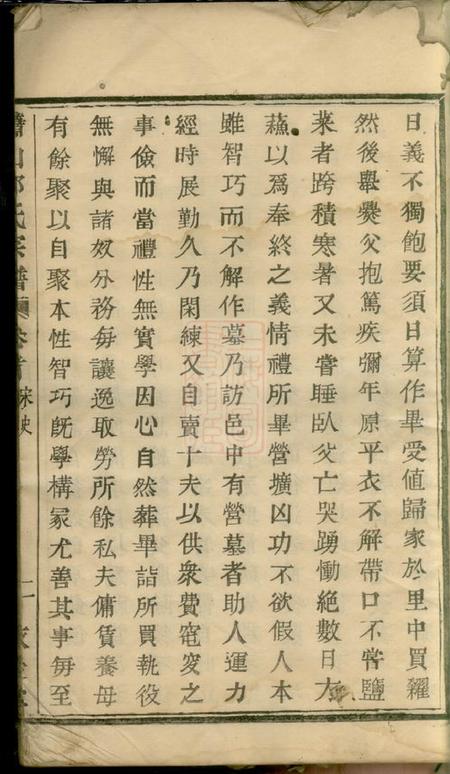 日義不獨飽要須日算作畢受值歸家於里中買糴
然後舉爨父抱篤疾彌年原平衣不解帶口不嘗鹽
菜者跨積寒暑又未嘗睡臥父亡哭踴慟絕數日方
蘓以爲奉終之義情禮所畢營壙凶功不欲假人本
雖智巧而不解作墓乃訪邑中有營墓者助人運力
經時展勤久乃閑練又自賣十夫以供衆費窀穸之
事儉而當禮性無實學因心自然葬畢詣所買執役
無懈與諸奴分務每讓逸取勞所餘私夫傭賃養母
有餘聚以自聚本性智巧旣學構冢尤善其事每至
氏宗譜 卷首 宋史 二